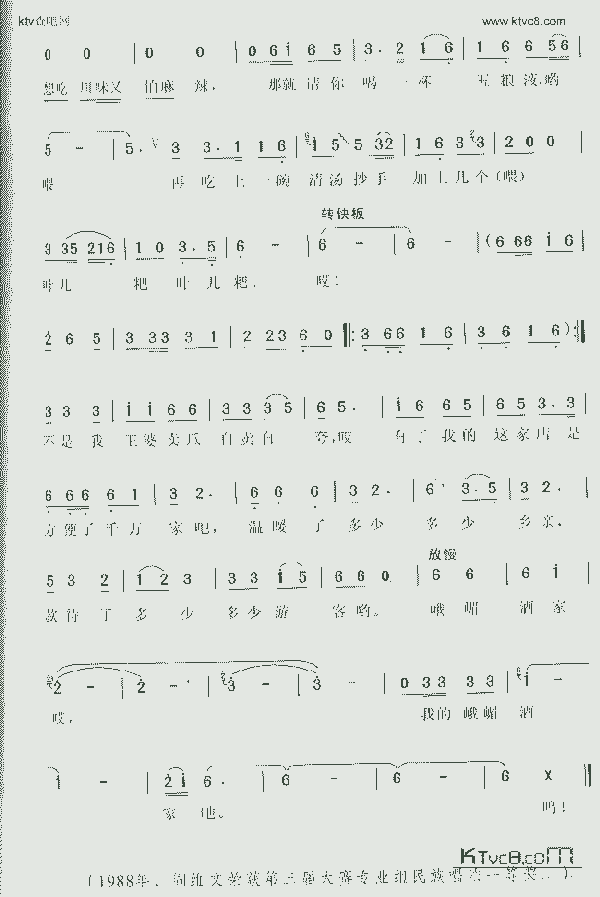 ktv 吧网 www.ktvc8.com
0 0 0 0 | 0 6 i 6 5 | 3. 2 1 6 | 1 6 6 5 6 |
想吃 川味又 怕麻 辣, 那就 请 你 喝 一 杯 五 粮 液,哟
5 - | 5. ∨ 3 | 3. 1 1 6 | 1 5 5 32 | 1 6 3 3 | 2 0 0 |
喂 再 吃 上 一 碗 清 汤 抄 手 加 上 几 个 (喂)
转快板
3 35 216 | 1 0 3. 5 | 6 - | 6 - | 6 - | (6 66 i 6 |
叶儿 粑 叶 儿 粑, 哎!
2 6 5 | 3 33 3 1 | 2 23 6 0 |: 3 66 1 6 | 3 6 1 6 ) :|
3 3 3 | i i 6 6 | 3 3 3 5 | 6 5. | i 6 6 5 | 6 5 3. 3 |
不 是 我 王 婆 卖 瓜 自 卖 自 夸,哎 有 了 我 的 这 家 店 是
6 6 6 6 1 | 3 2. | 6 6 6 | 3 2. | 6 3. 5 | 3 2. |
方 便 了 千 万 家 吧, 温 暖 了 多 少 多 少 乡 亲,
放慢
5 3 2 | 1 2 3 | 3 3 i 5 | 6 6 0 | 6 6 | 6 i |
款 待 了 多 少 多 少 游 客 哟。 峨 嵋 酒 家
2 - | 2 - | 3 - | 3 - | 0 33 3 3 | i - |
哎, 我的 峨 嵋 酒
1 - | 2 i 6. | 6 - | 6 - | 6 X ||
家 吔。 吗!
KTvc8.com
(1988年,